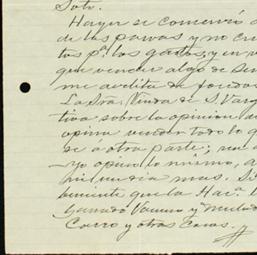 Soto.
Hayer se comenzó a
de las parvas y no cre
tos pª. los gastos, y en v
que vender algo de sem
me
La Sra. Viuda de S. Varg
tiva sobre la opinion de
opina vender todo lo q
se a otra parte;
yo opino lo mismo, a
mil un dia mas. Si
biniente que la Hacª. l
Ganado Vacuno y Mulad
Carro y otras Cosas.